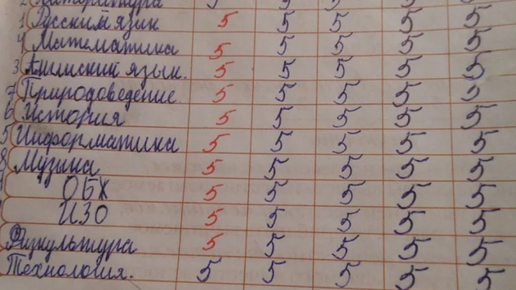 2 Литература 5 5 5 5 5
1 Русский язык 5 5 5 5 5
4 Математика 5 5 5 5 5
3 Английский язык. 5 5 5 5 5
7 Природоведение 5 5 5 5 5
6 История 5 5 5 5 5
5 Информатика 5 5 5 5 5
8 Музыка 5 5 5 5 5
ОБЖ 5 5 5 5 5
ИЗО 5 5 5 5 5
Физкультура 5 5 5 5 5
Технология. 5 5 5 5 5